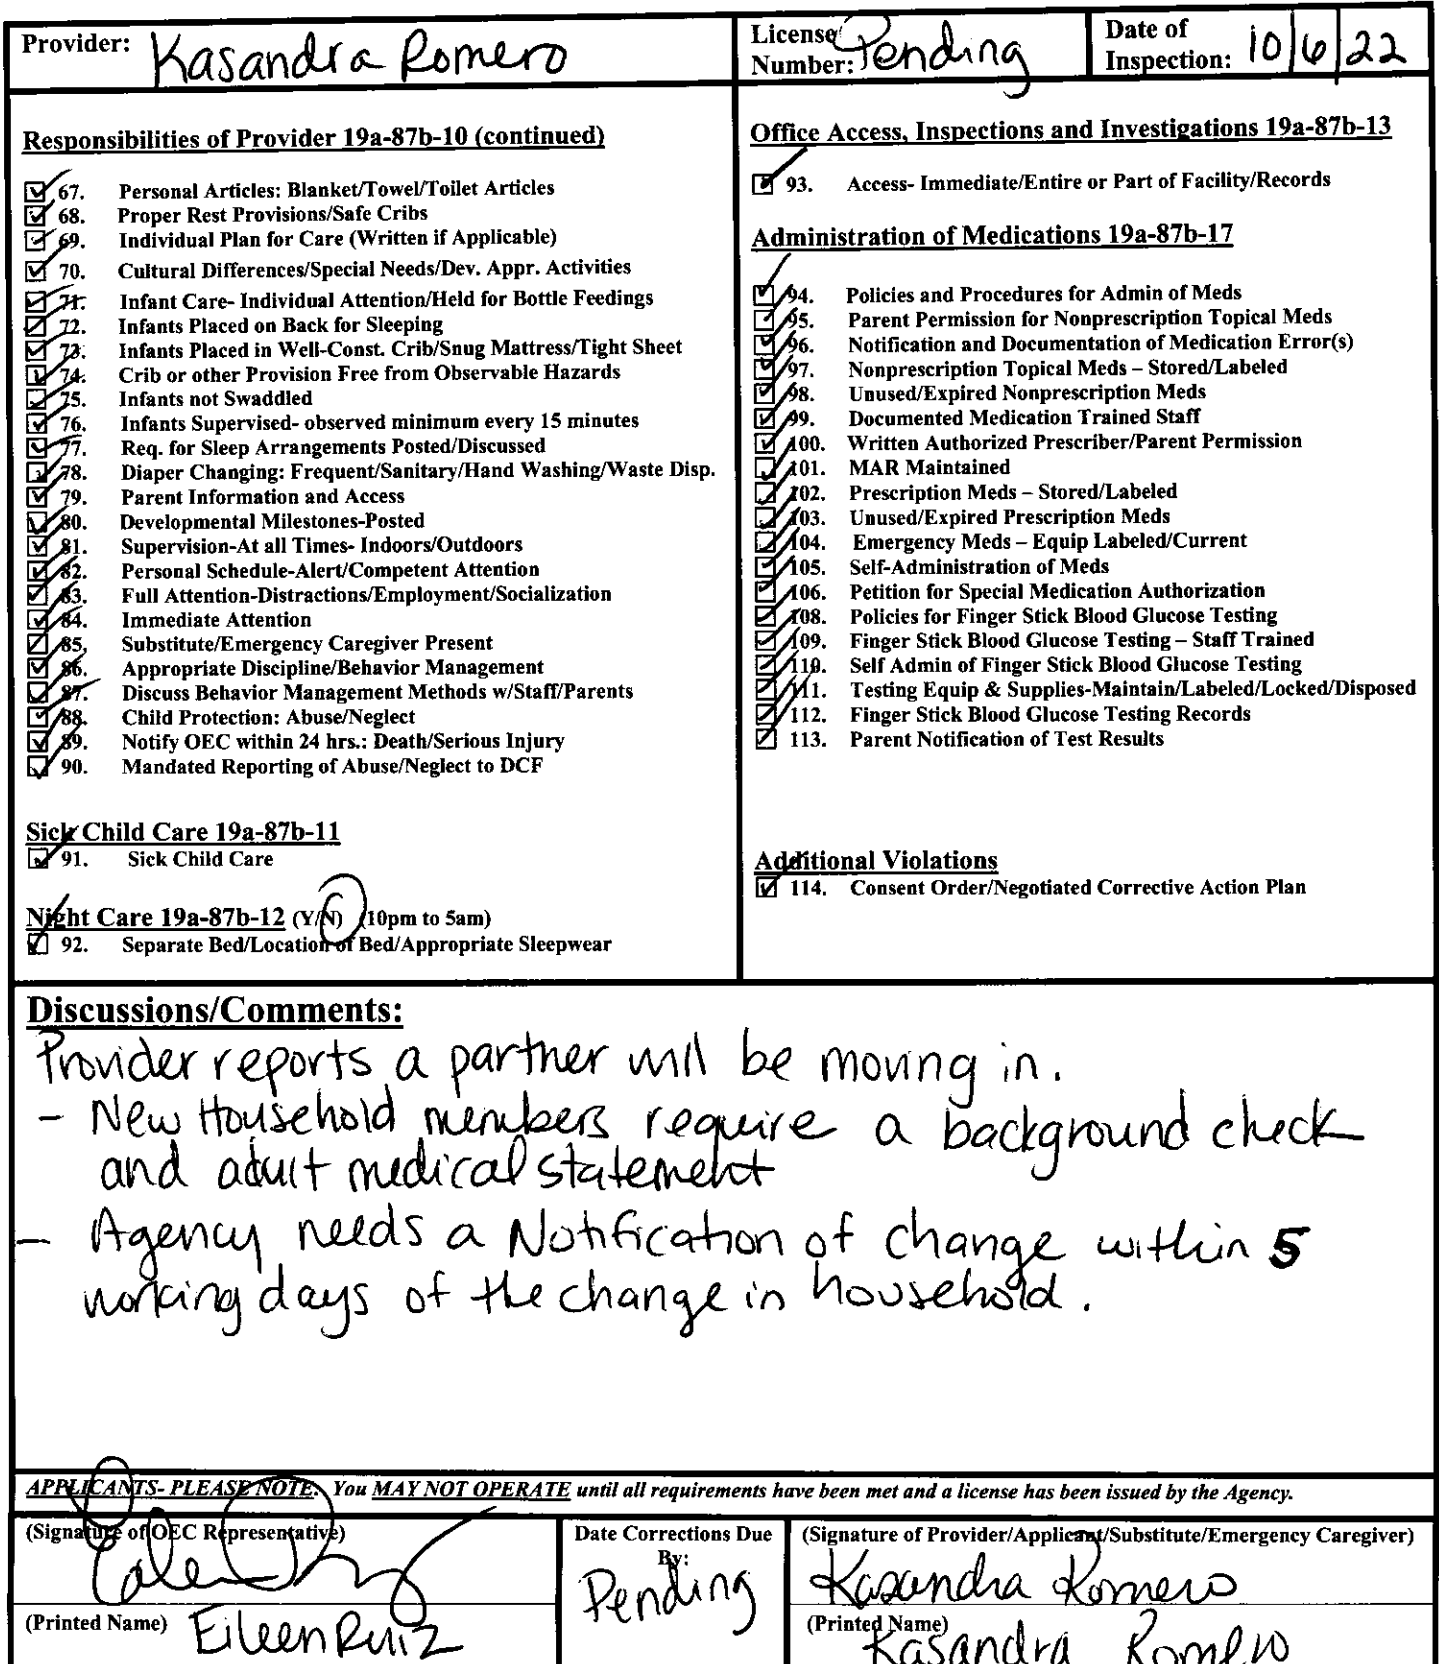 Provider: Kasandra Romero
License Number: Pending
Date of Inspection: 10/6/22
Responsibilities of Provider 19a-87b-10 (continued)
67. Personal Articles: Blanket/Towel/Toilet Articles
68. Proper Rest Provisions/Safe Cribs
69. Individual Plan for Care (Written if Applicable)
70. Cultural Differences/Special Needs/Dev. Appr. Activities
71. Infant Care- Individual Attention/Held for Bottle Feedings
72. Infants Placed on Back for Sleeping
73. Infants Placed in Well-Const. Crib/Snug Mattress/Tight Sheet
74. Crib or other Provision Free from Observable Hazards
75. Infants not Swaddled
76. Infants Supervised- observed minimum every 15 minutes
77. Req. for Sleep Arrangements Posted/Discussed
78. Diaper Changing: Frequent/Sanitary/Hand Washing/Waste Disp.
79. Parent Information and Access
80. Developmental Milestones-Posted
81. Supervision-At all Times- Indoors/Outdoors
82. Personal Schedule-Alert/Competent Attention
83. Full Attention-Distractions/Employment/Socialization
84. Immediate Attention
85. Substitute/Emergency Caregiver Present
86. Appropriate Discipline/Behavior Management
87. Discuss Behavior Management Methods w/Staff/Parents
88. Child Protection: Abuse/Neglect
89. Notify OEC within 24 hrs.: Death/Serious Injury
90. Mandated Reporting of Abuse/Neglect to DCF
Sick Child Care 19a-87b-11
91. Sick Child Care
Night Care 19a-87b-12 (Y/N) (10pm to 5am)
92. Separate Bed/Location of Bed/Appropriate Sleepwear
Office Access, Inspections and Investigations 19a-87b-13
93. Access- Immediate/Entire or Part of Facility/Records
Administration of Medications 19a-87b-17
94. Policies and Procedures for Admin of Meds
95. Parent Permission for Nonprescription Topical Meds
96. Notification and Documentation of Medication Error(s)
97. Nonprescription Topical Meds – Stored/Labeled
98. Unused/Expired Nonprescription Meds
99. Documented Medication Trained Staff
100. Written Authorized Prescriber/Parent Permission
101. MAR Maintained
102. Prescription Meds – Stored/Labeled
103. Unused/Expired Prescription Meds
104. Emergency Meds – Equip Labeled/Current
105. Self-Administration of Meds
106. Petition for Special Medication Authorization
108. Policies for Finger Stick Blood Glucose Testing
109. Finger Stick Blood Glucose Testing – Staff Trained
110. Self Admin of Finger Stick Blood Glucose Testing
111. Testing Equip & Supplies-Maintain/Labeled/Locked/Disposed
112. Finger Stick Blood Glucose Testing Records
113. Parent Notification of Test Results
Additional Violations
114. Consent Order/Negotiated Corrective Action Plan
Discussions/Comments:
Provider reports a partner will be moving in.
- New Household members require a background check
and adult medical statement
- Agency needs a Notification of change within 5
working days of the change in household.
APPLICANTS- PLEASE NOTE: You MAY NOT OPERATE until all requirements have been met and a license has been issued by the Agency.
(Signature of OEC Representative)
(Printed Name) Eileen Ruiz
Date Corrections Due
By:
Pending
(Signature of Provider/Applicant/Substitute/Emergency Caregiver)
Kasandra Romero
(Printed Name)
Kasandra Romero